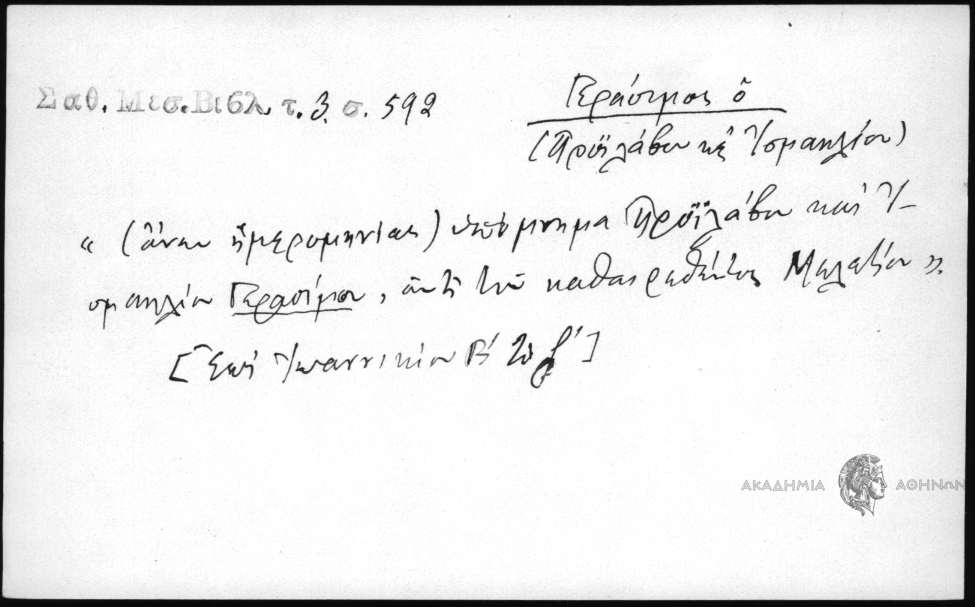 Σαθ. Μεσ. Βιβλ. τ. 3. σ. 592
Γεράσιμος ὁ
(Προϊλάβου κὲ Ἰσμαηλίου)
« (ἄνευ ἡμερομηνίας) ὑπόμνημα Προϊλάβου καὶ Ἰ-
σμαηλίου Γερασίμου, ἀντὶ τοῦ καθαιρεθέντος Μελετίου ».
[Ἐπὶ Ἰωαννικίου Β' τὸ]
ΑΚΑΔΗΜΙΑ ΑΘΗΝΩΝ